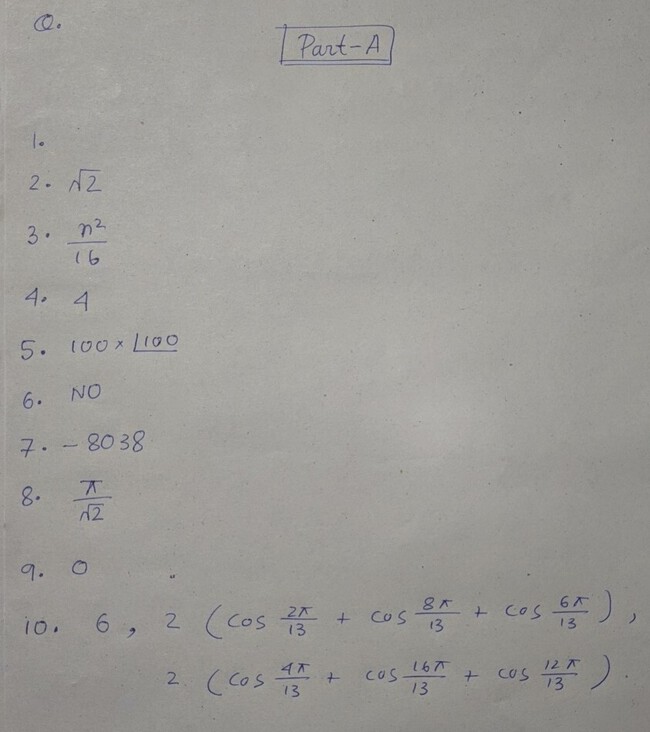 Q.
Part-A
1.
2. √2
3. n²/16
4. 4
5. 100 × ⌊100
6. NO
7. - 8038
8. π/√2
9. 0
10. 6, 2 (cos 2π/13 + cos 8π/13 + cos 6π/13),
2 (cos 4π/13 + cos 16π/13 + cos 12π/13).